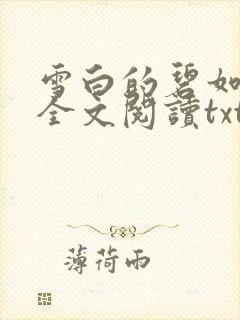 雪白的碧如
全文閱讀txt
薄荷雨